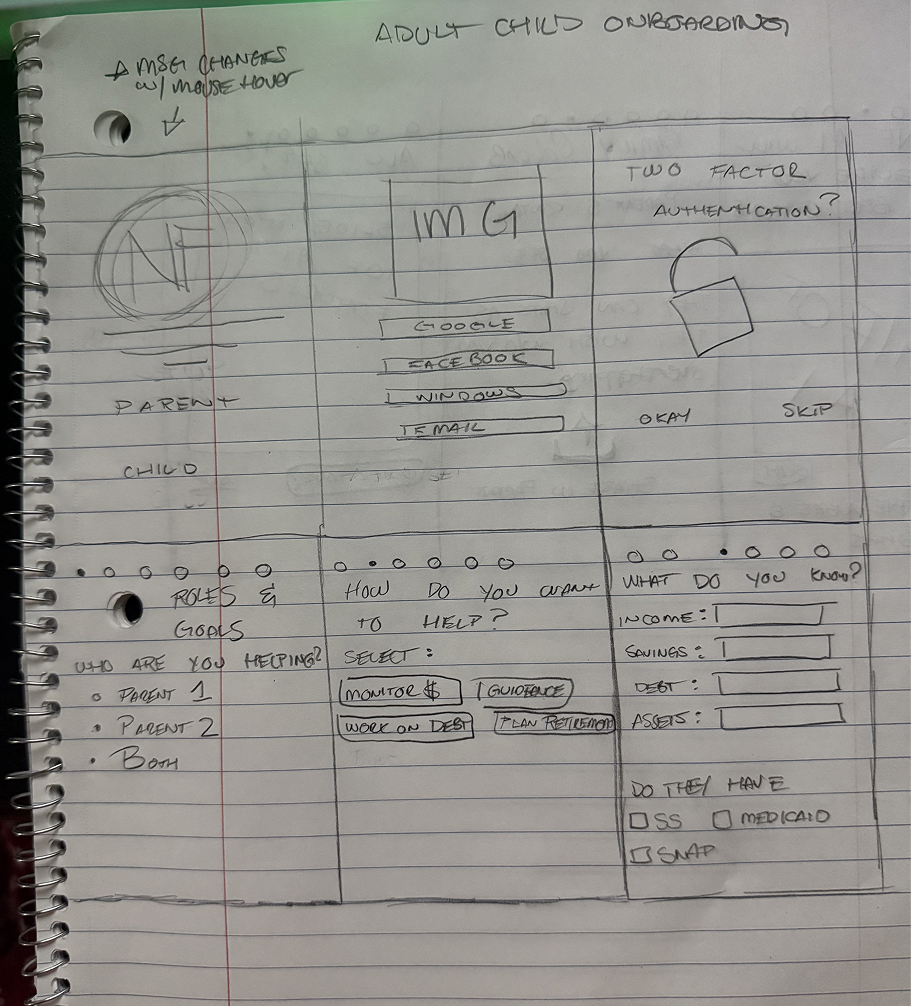 ADULT CHILD ONBOARDING
MSG CHANGES
W/ MOUSE HOVER
NF
PARENT
CHILD
IMG
GOOGLE
FACEBOOK
WINDOWS
EMAIL
TWO FACTOR
AUTHENTICATION?
OKAY SKIP
ROLES &
GOALS
WHO ARE YOU HELPING?
PARENT 1
PARENT 2
BOTH
HOW DO YOU WANT
TO HELP?
SELECT:
MONITOR $ GUIDENCE
WORK ON DEBT PLAN RETIREMENT
WHAT DO YOU KNOW?
INCOME:
SAVINGS:
DEBT:
ASSETS:
DO THEY HAVE
SS MEDICAID
SNAP